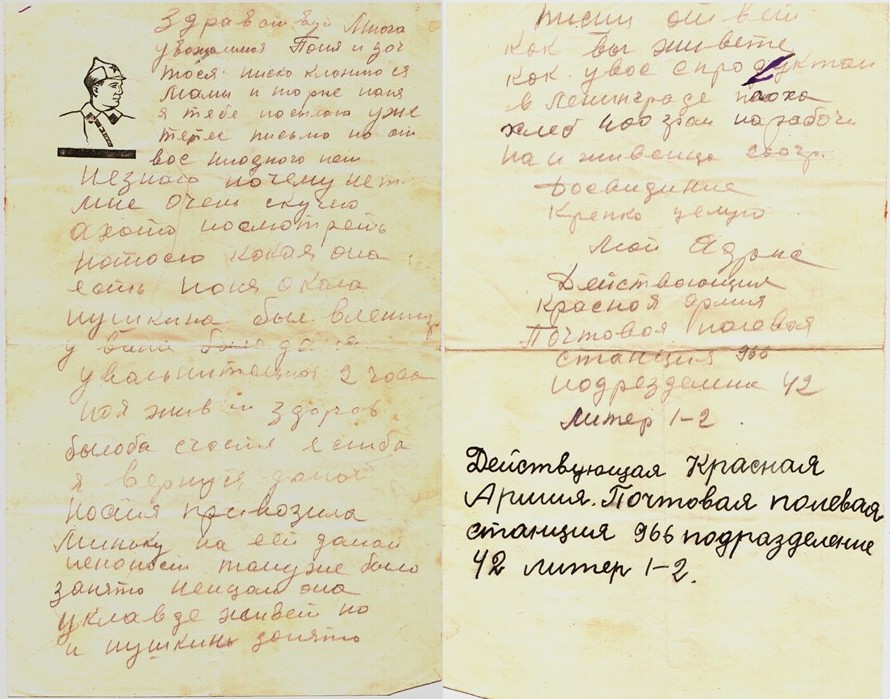 Здравствуй Много
уважаимоя Поня и доч
тося. ниско кланиюся
мами и
я тебе посылаю уже
письмо но от
вос ниодного нет
незнаю почему нет.
мне очен скучно
охото посмотреть
нотосю кокая она
есть Поня окола
пушкина был вленинг
у вани
увальнительная 2 часа
жив и здоров
былоба счастя
я вернуся домой
ностя привозила
Миньку на ей домой
было
занято немцам она
уклавде живет но
и пушкинь занято
пиши ответ
как вы живете
как увос спродуктам
в ленинграде плоха
хлеб 400 грам на рабочи
200 гр.
Досвидание
Крепко целую
Мой Адрис
Действоющия
красноя армия
Почтовоя полевая
станция 966
подразделение 42
литер 1-2.
Действующая Красная
Армия. Почтовая полевая
станция 966 подразделение
42 литер 1-2.